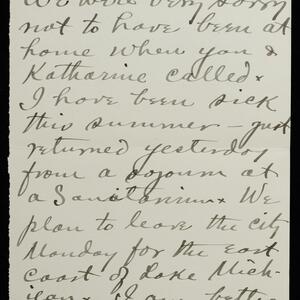 We were very sorry
not to have been at
home when you &
Katharine called x
I have been sick
this summer – just
returned yesterday
from a sojourn at
a Sanitarium x We
plan to leave the city
Monday for the east
coast of Lake Mich-
igan x I am better